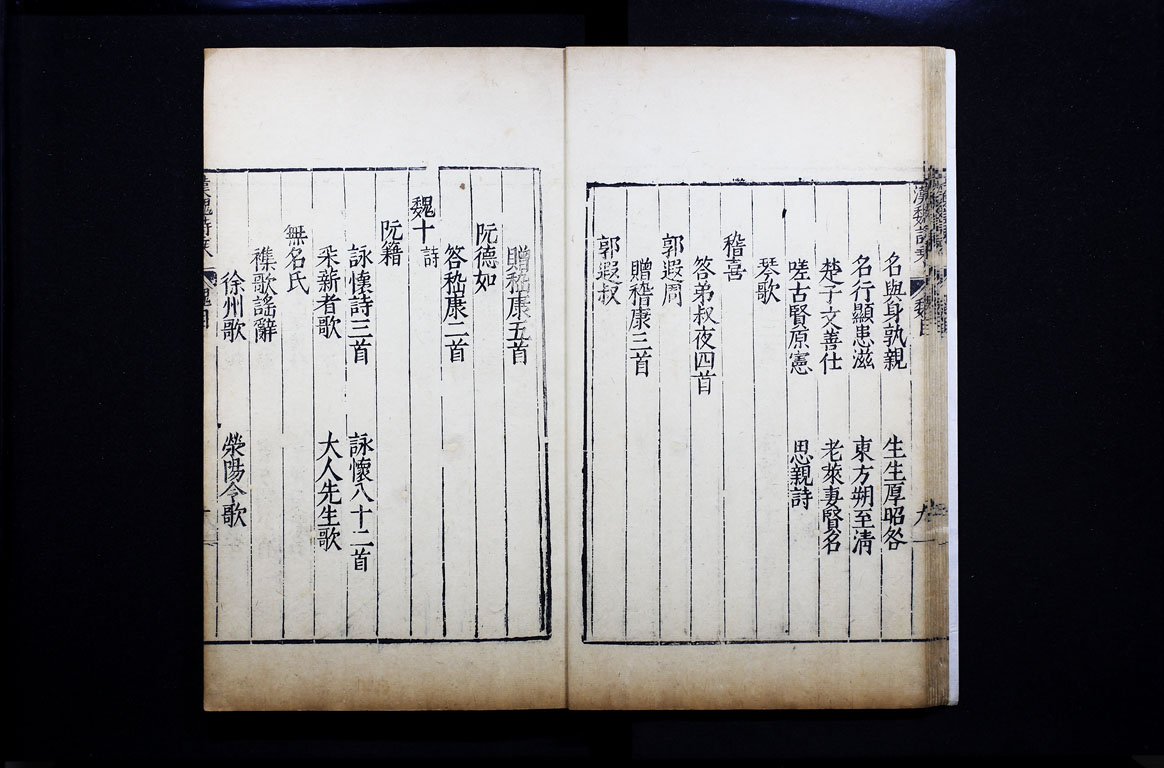 名與身孰親　生生厚昭咎
名行顯患滋　東方朔至清
楚子文善仕　老萊妻賢名
嗟古賢原憲　思親詩
琴歌
嵇喜
答弟叔夜四首
郭遐周
贈嵇康三首
郭遐叔
贈嵇康五首
阮德如
答嵇康二首
魏十 詩
阮籍
詠懷詩三首　詠懷八十二首
采薪者歌　大人先生歌
無名氏
襍歌謡辭
徐州歌　滎陽令歌